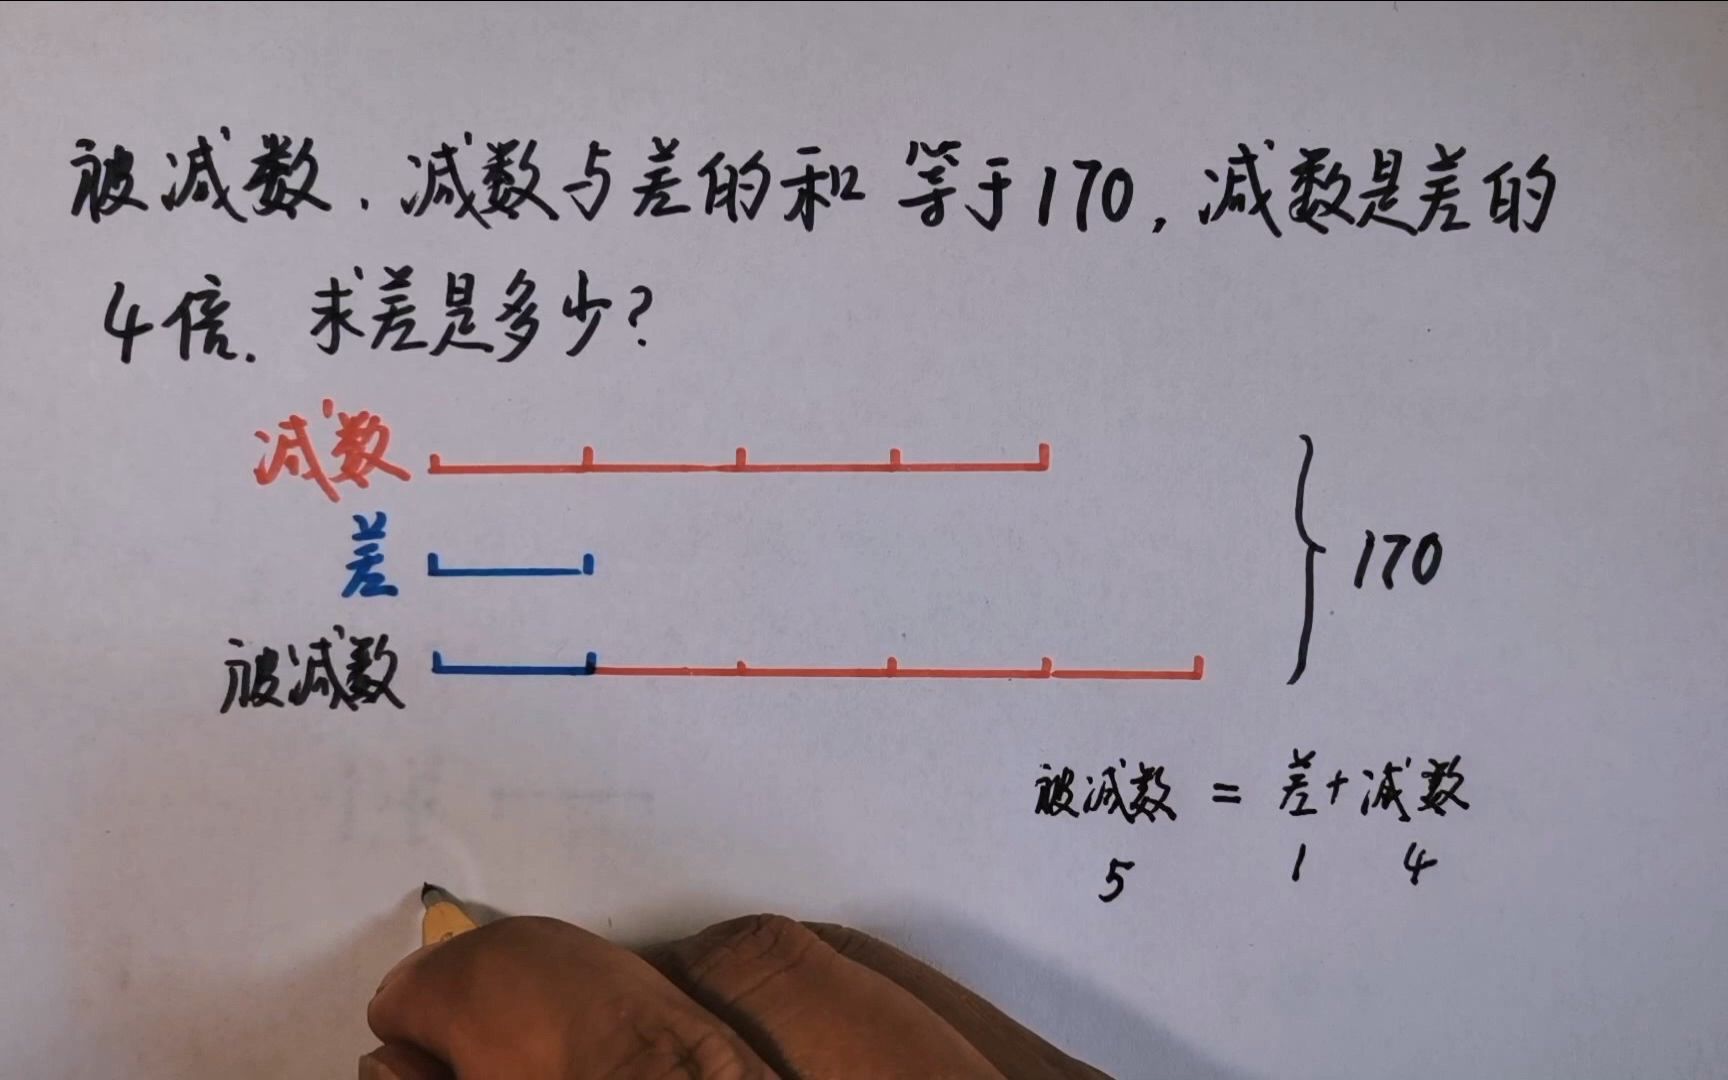 被减数、减数与差的和等于170,减数是差的
4倍.求差是多少?
减数
差
170
被减数
被减数 = 差+减数
5 1 4